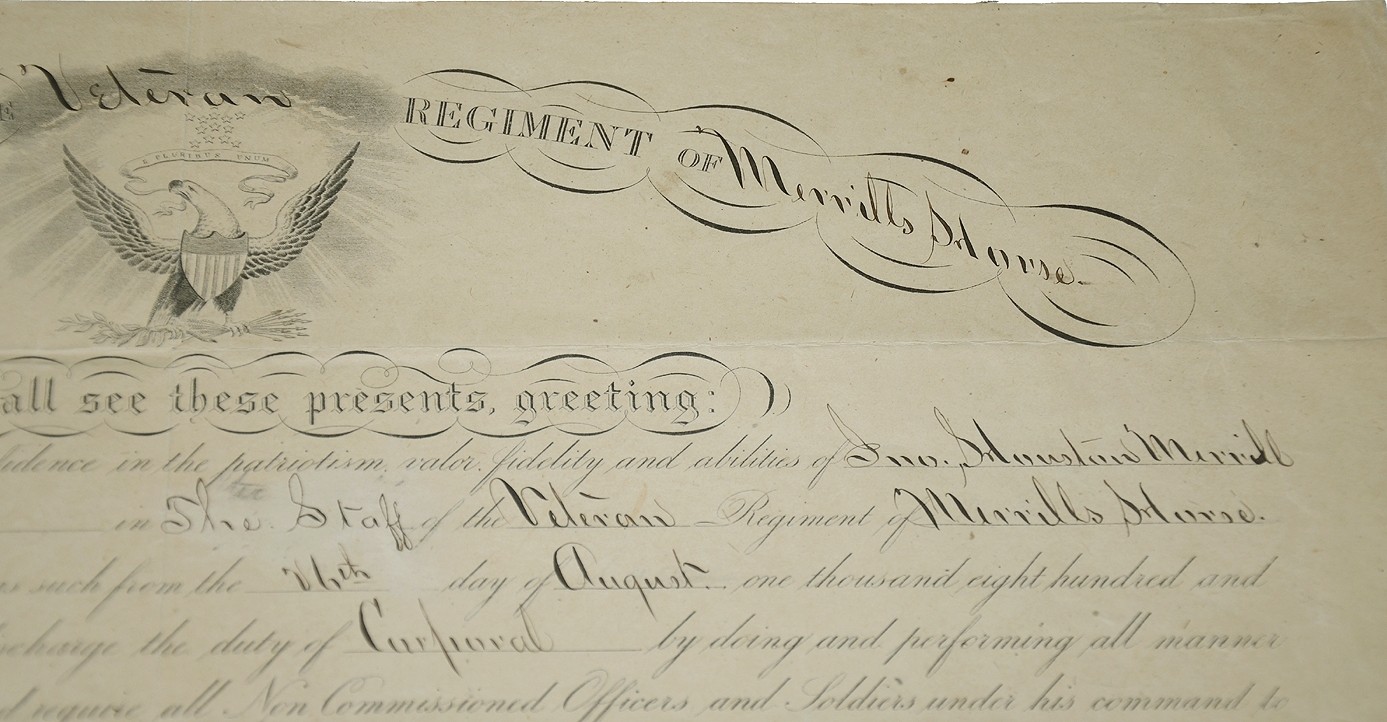 Veteran REGIMENT OF Merrills Horse.
E PLURIBUS UNUM
all see these presents, greeting:
fidence in the patriotism, valor, fidelity and abilities of Jno. Houston Merrill
in The Staff of the Veteran Regiment of Merrills Horse.
as such from the day of August one thousand eight hundred and
scharge the duty of Corporal by doing and performing all manner
d require all Non Commissioned Officers and Soldiers under his command to